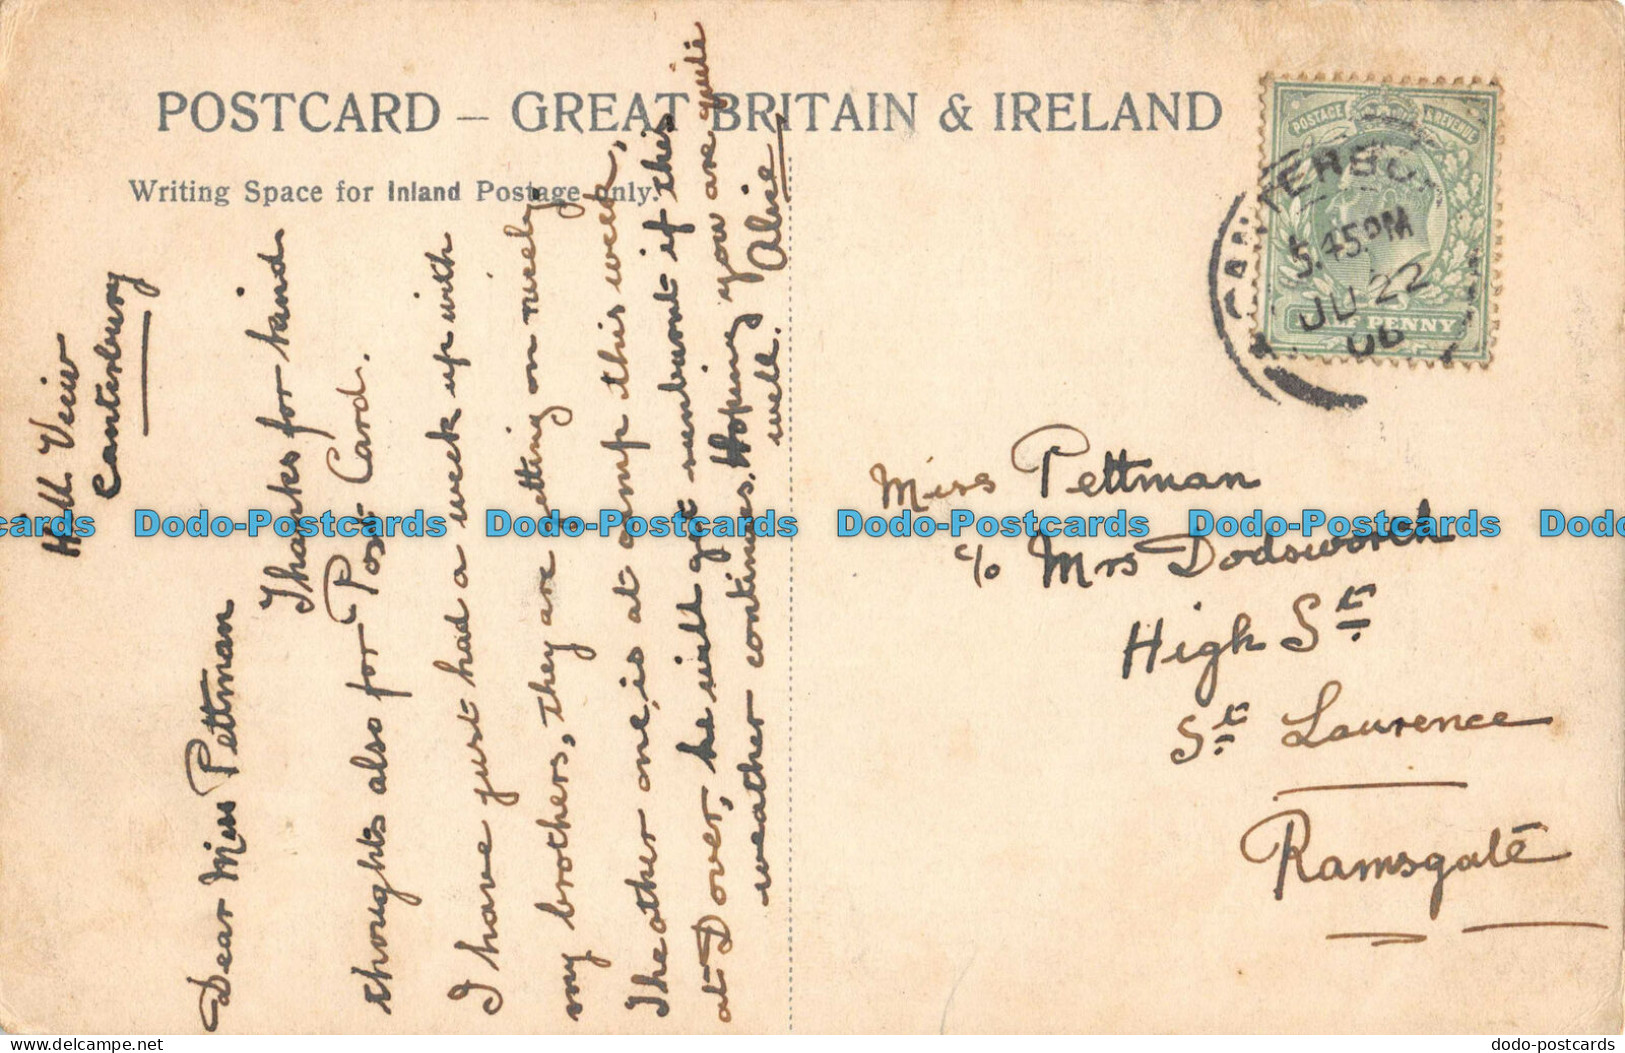 POSTCARD – GREAT BRITAIN & IRELAND
Writing Space for Inland Postage only.
Hill View
Canterbury
Dear Miss Pettman
Thanks for kind
thoughts also for Post Card.
I have just had a week up with
my brothers, they are getting on nicely
The other one, is at camp this week,
at Dover, he will get sunburnt if this
weather continues. Hoping you are quite
well. Alice
POSTAGE & REVENUE
HALF PENNY
CANTERBU
5.45 PM
JU 22
06
Miss Pettman
c/o Mrs Dodsworth
High St
St Laurence
Ramsgate
Dodo-Postcards Dodo-Postcards Dodo-Postcards Dodo-Postcards
delcampe.net
dodo-postcards